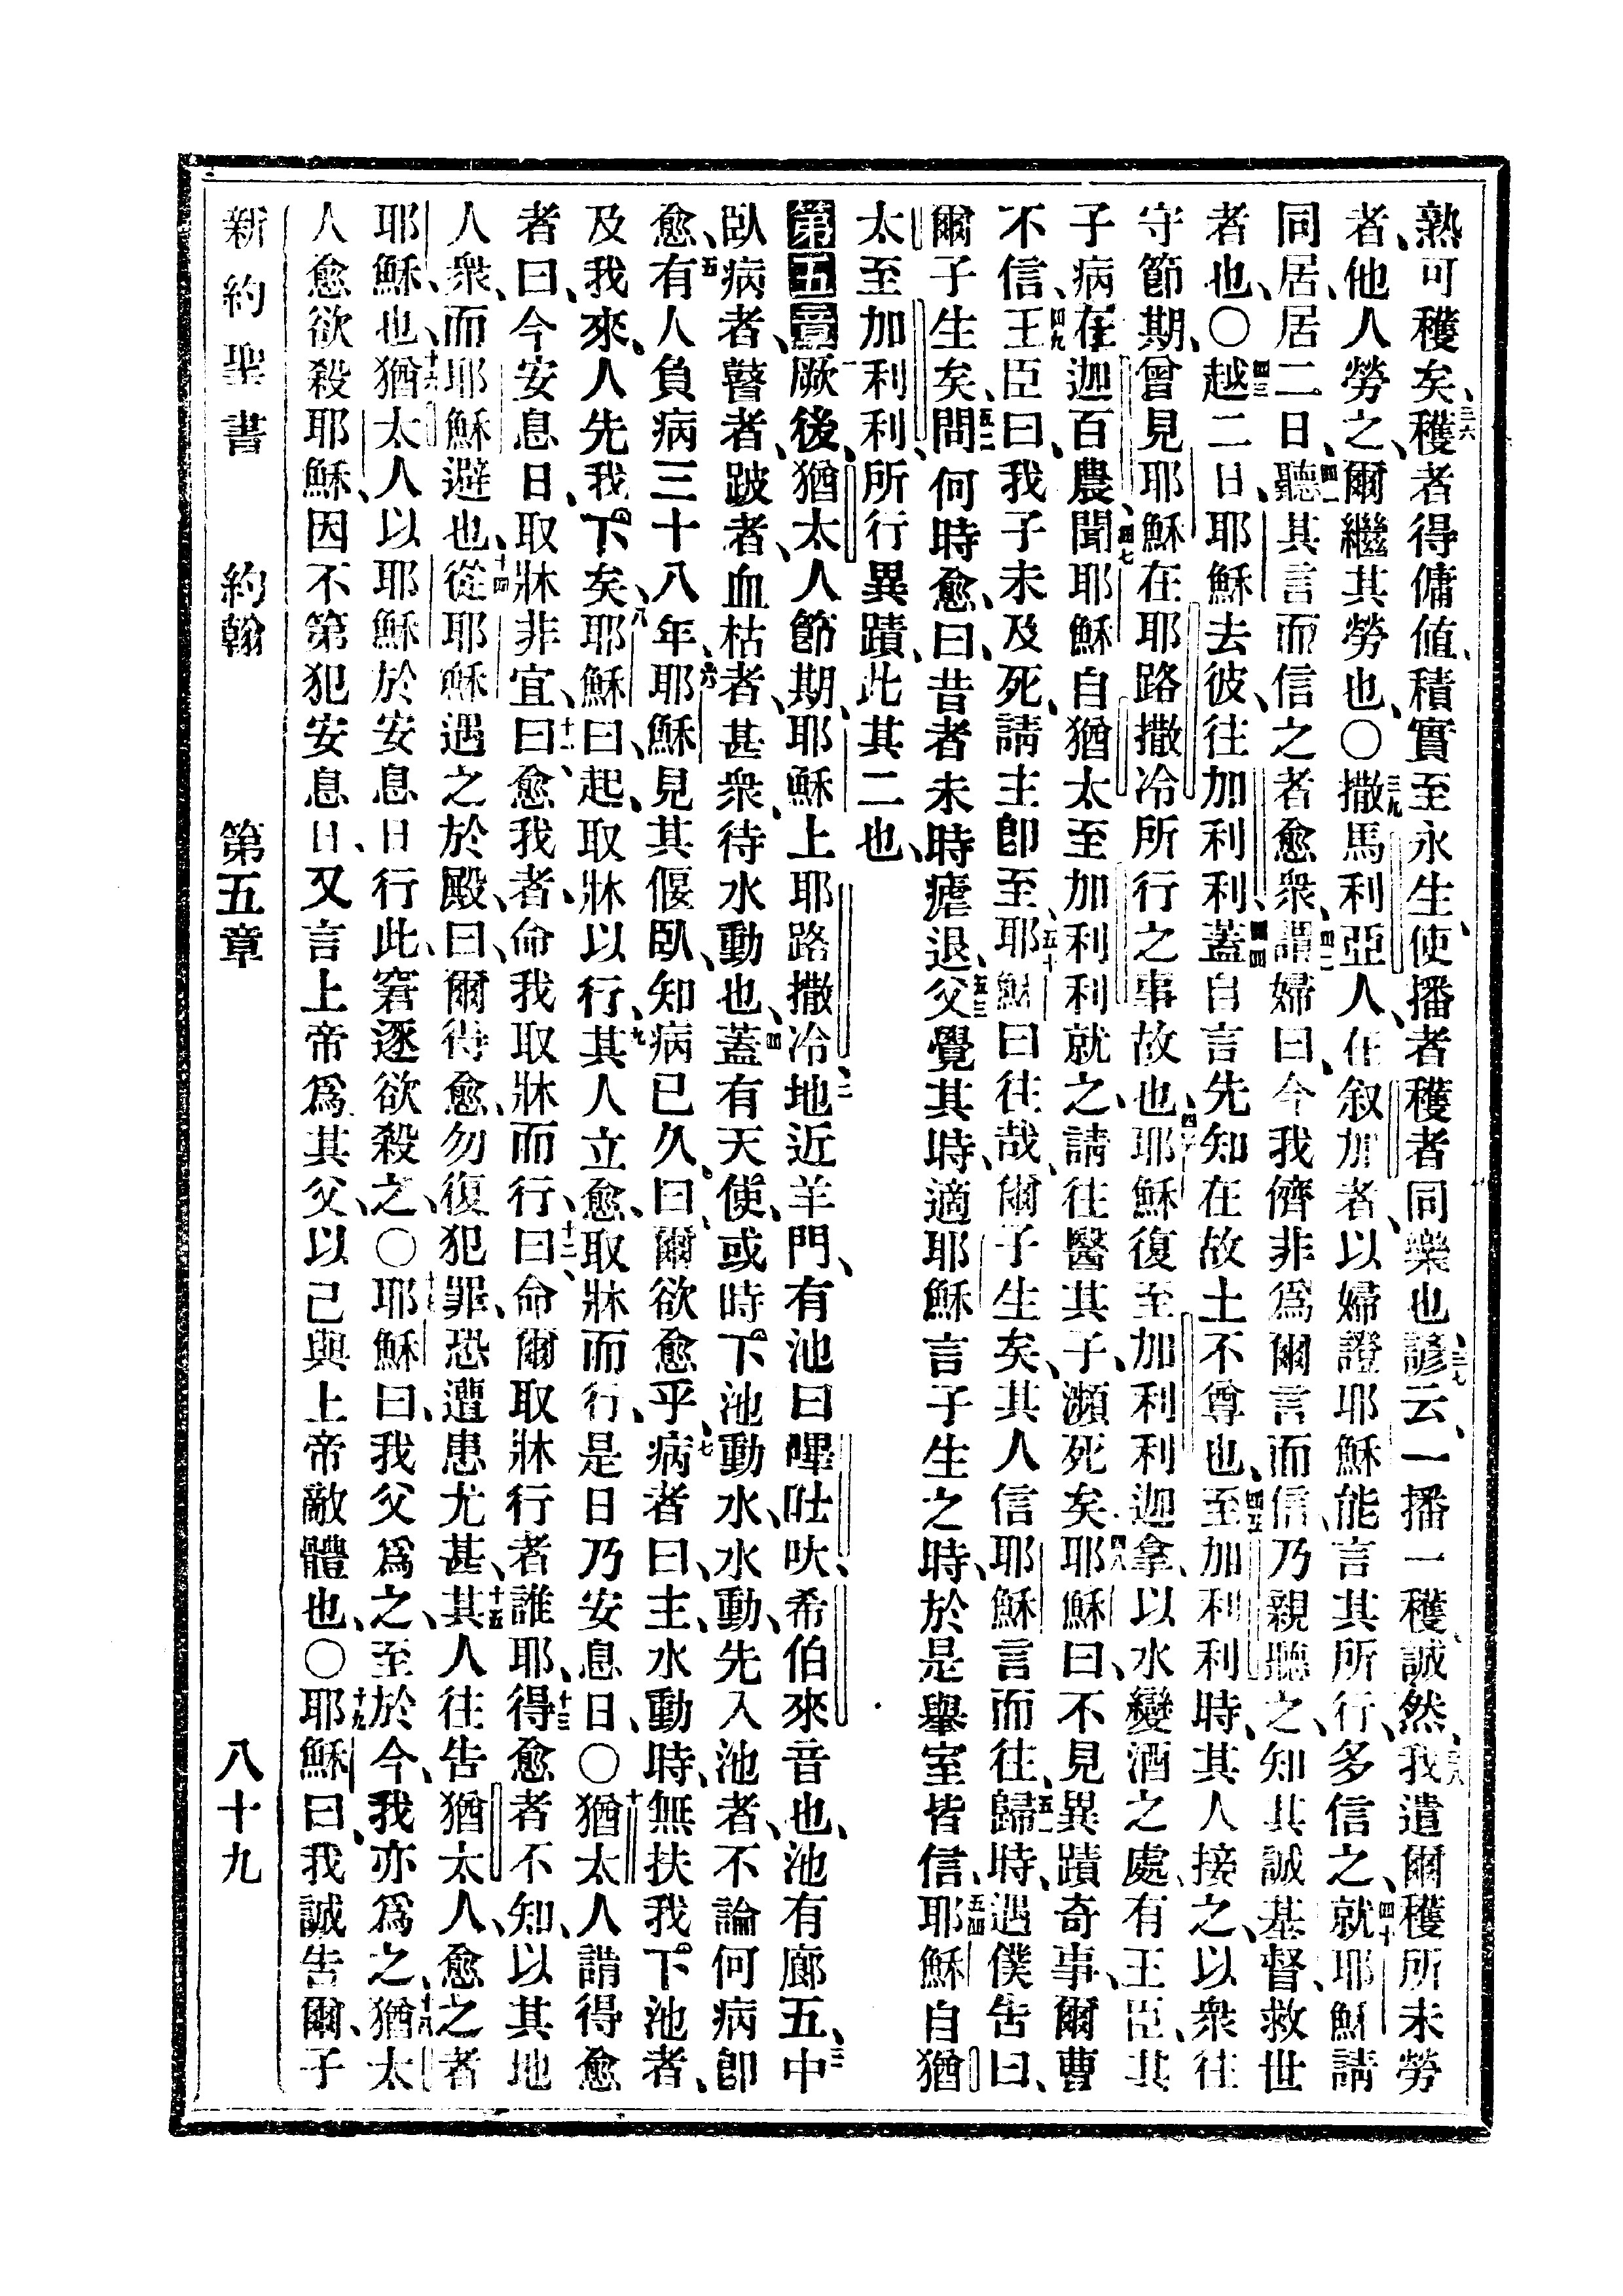 熟可穫矣、三六穫者得傭値、積實至永生、使播者穫者同樂也、三七諺云、一播一穫、誠然、三八我遣爾穫所未勞
者、他人勞之、爾繼其勞也、〇三九撒馬利亞人、在叙加者、以婦證耶穌能言其所行、多信之、四十就耶穌請
同居、居二日、四一聽其言而信之者愈衆、四二謂婦曰、今我儕非爲爾言而信、乃親聽之、知其誠基督、救世
者也、〇四三越二日、耶穌去彼、往加利利、四四蓋自言先知在故土不尊也、四五至加利利時、其人接之、以衆往
守節期、曾見耶穌在耶路撒冷所行之事故也、四六耶穌復至加利利迦拿、以水變酒之處、有王臣、其
子病在迦百農、四七聞耶穌自猶太至加利利、就之、請往醫其子、瀕死矣、四八耶穌曰、不見異蹟奇事、爾曹
不信、四九王臣曰、我子未及死、請主卽至、五十耶穌曰、往哉、爾子生矣、其人信耶穌言而往、五一歸時、遇僕告曰、
爾子生矣、五二問何時愈、曰、昔者未時瘧退、五三父覺其時、適耶穌言子生之時、於是舉室皆信、五四耶穌自猶
太至加利利、所行異蹟、此其二也、
第五章一厥後、猶太人節期、耶穌上耶路撒冷、二地近羊門、有池曰嗶吐呔、希伯來音也、池有廊五、三中
臥病者、瞽者、跛者、血枯者、甚衆、待水動也、四蓋有天使、或時下池動水、水動、先入池者、不論何病卽
愈、五有人負病三十八年、六耶穌見其偃臥、知病已久、曰、爾欲愈乎、七病者曰、主、水動時、無扶我下池者、
及我來、人先我下矣、八耶穌曰、起、取牀以行、九其人立愈、取牀而行、是日乃安息日、〇十猶太人謂得愈
者曰、今安息日、取牀非宜、十一曰、愈我者、命我取牀而行、十二曰、命爾取牀行者誰耶、十三得愈者不知、以其地
人衆、而耶穌避也、十四從耶穌遇之於殿、曰、爾得愈、勿復犯罪、恐遭患尤甚、十五其人往告猶太人、愈之者
耶穌也、十六猶太人以耶穌於安息日行此、窘逐欲殺之、〇十七耶穌曰、我父爲之、至於今、我亦爲之、十八猶太
人愈欲殺耶穌、因不第犯安息日、又言上帝爲其父、以己與上帝敵體也、〇十九耶穌曰、我誠告爾、子
新約聖書 約翰 第五章 八十九